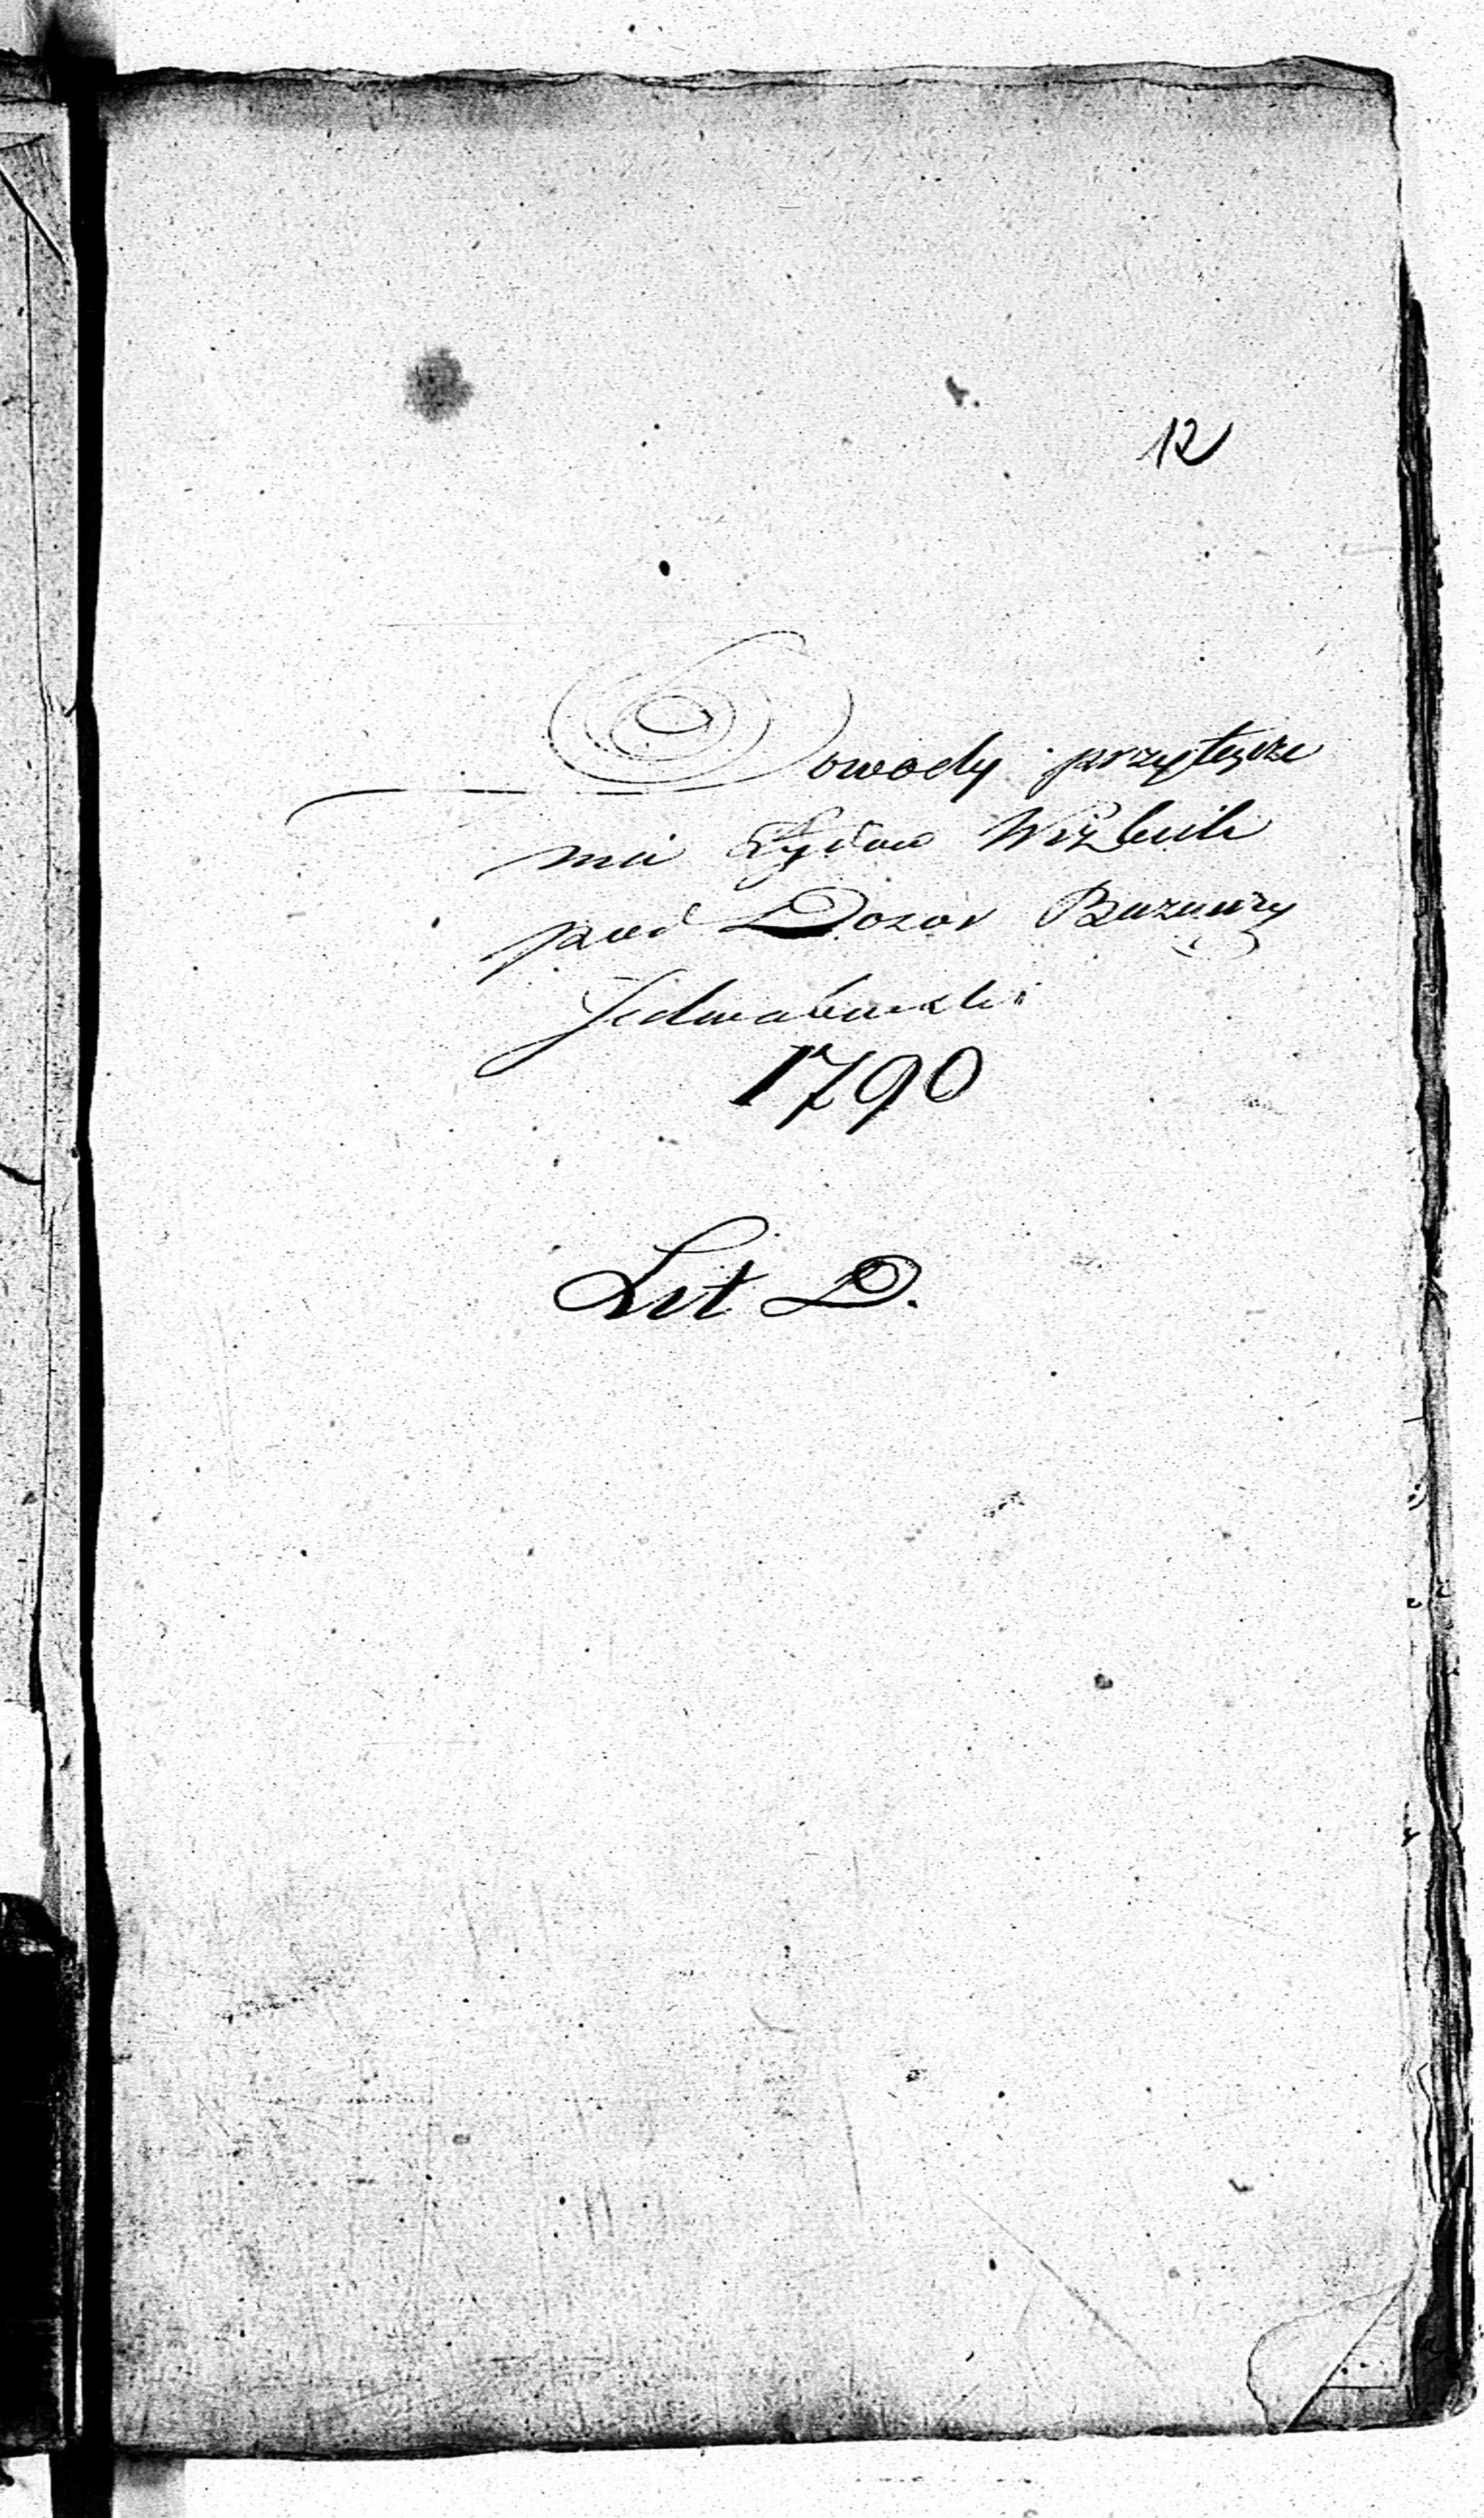 12
Dowody przyłącze
nia Żydow Wizkich
pod Dozor Bużnicy
Jedwabinski
1790
Lit D.